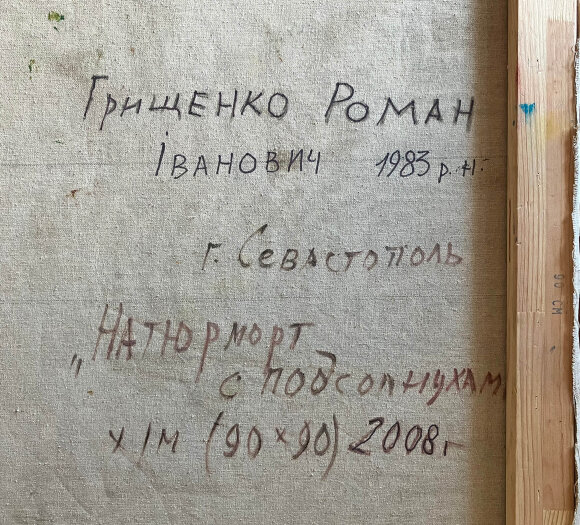 Грищенко Роман
Іванович 1983 р. н.
г. Севастополь
„Натюрморт
с подсолнухам
х/м (90×90) 2008г
90 CM